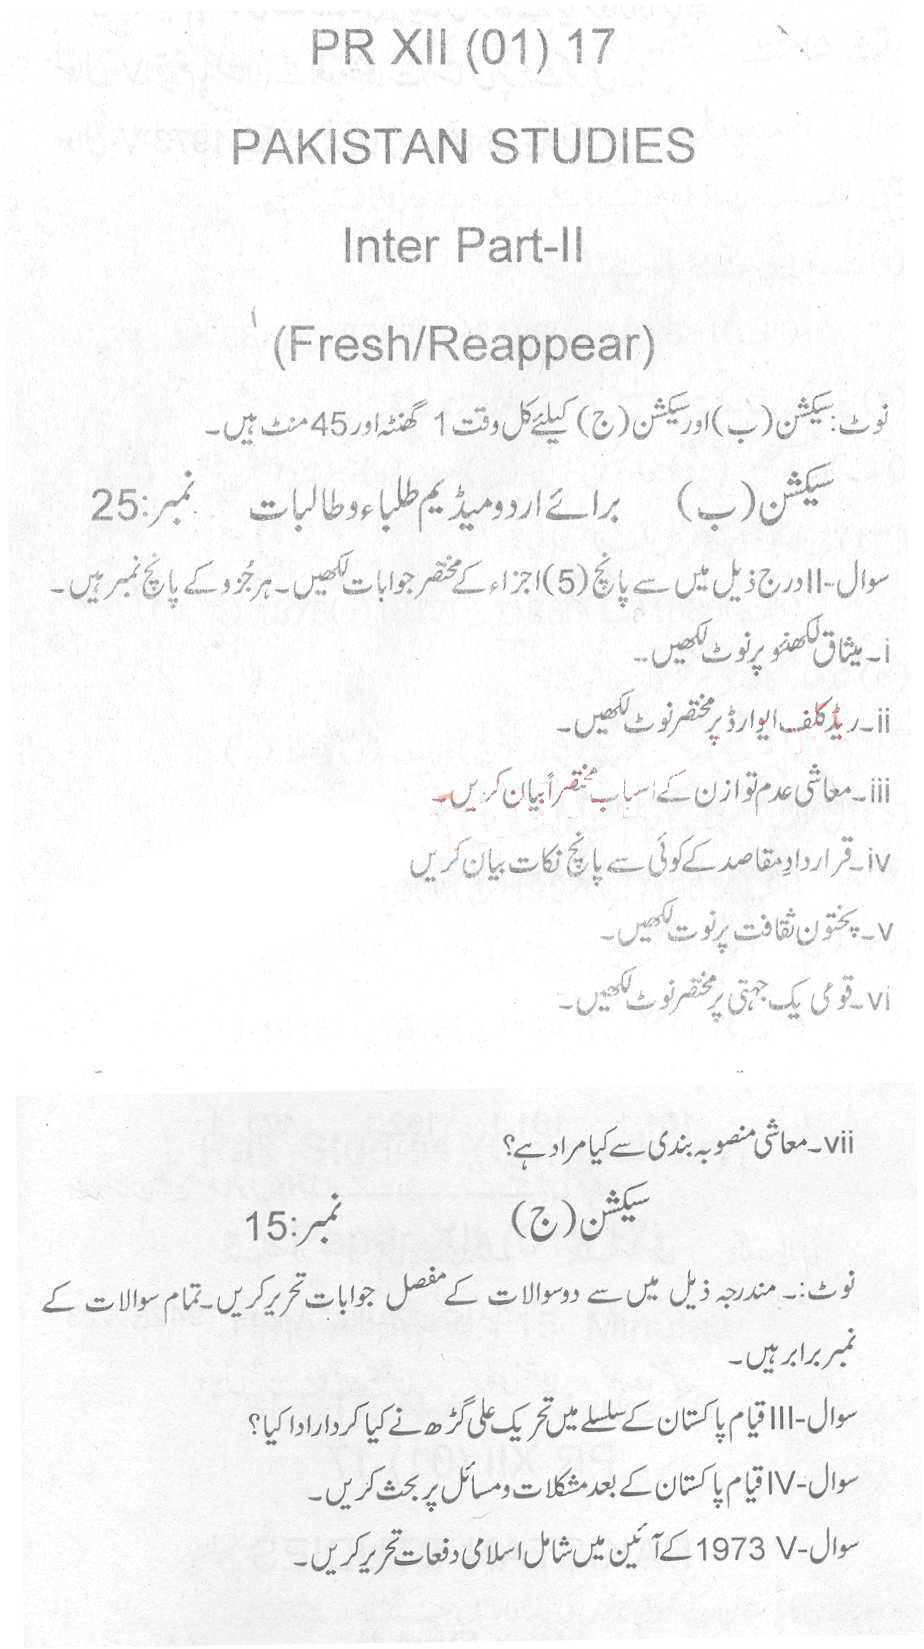 PR XII (01) 17
PAKISTAN STUDIES
Inter Part-II
(Fresh/Reappear)
نوٹ: سیکشن (ب) اور سیکشن (ج) کیلئے کل وقت 1 گھنٹہ اور 45 منٹ ہیں۔
سیکشن (ب) برائے اردو میڈیم طلباء و طالبات نمبر: 25
سوال-II درج ذیل میں سے پانچ (5) اجزاء کے مختصر جوابات لکھیں۔ ہر جُزو کے پانچ نمبر ہیں۔
i۔ میثاق لکھنؤ پر نوٹ لکھیں۔
ii۔ ریڈ کلف ایوارڈ پر مختصر نوٹ لکھیں۔
iii۔ معاشی عدم توازن کے اسباب مختصراً بیان کریں۔
iv۔ قراردادِ مقاصد کے کوئی سے پانچ نکات بیان کریں
v۔ پختون ثقافت پر نوٹ لکھیں۔
vi۔ قومی یک جہتی پر مختصر نوٹ لکھیں۔
vii۔ معاشی منصوبہ بندی سے کیا مراد ہے؟
سیکشن (ج) نمبر: 15
نوٹ:۔ مندرجہ ذیل میں سے دو سوالات کے مفصل جوابات تحریر کریں۔ تمام سوالات کے
نمبر برابر ہیں۔
سوال-III قیام پاکستان کے سلسلے میں تحریک علی گڑھ نے کیا کردار ادا کیا؟
سوال-IV قیام پاکستان کے بعد مشکلات و مسائل پر بحث کریں۔
سوال-V 1973 کے آئین میں شامل اسلامی دفعات تحریر کریں۔